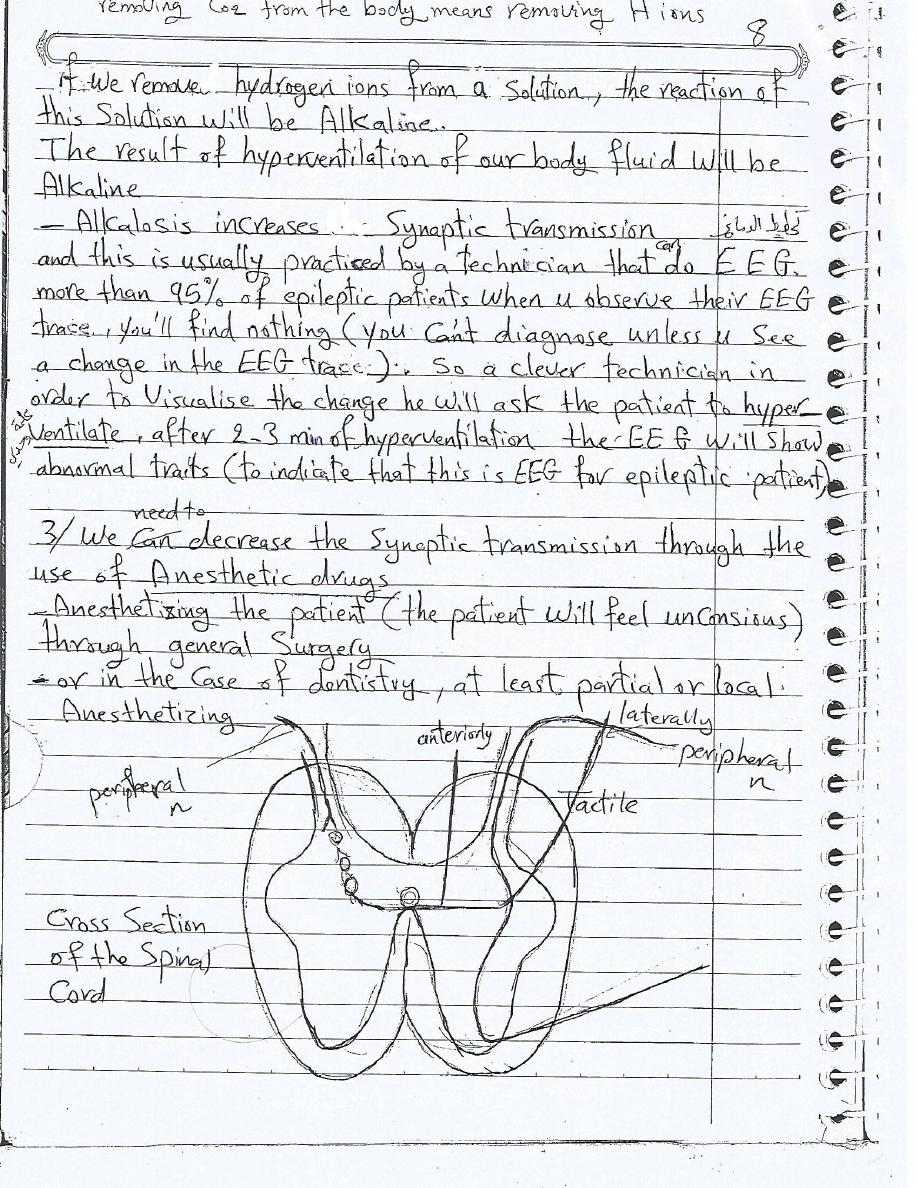 removing Co2 from the body means removing H ions
8
if we remove hydrogen ions from a solution, the reaction of
this Solution will be Alkaline.
The result of hyperventilation of our body fluid will be
Alkaline
- Alkalosis increases Synaptic transmission
تخطيط الدماغ
and this is usually practiced by a technician that can do EEG.
more than 95% of epileptic patients when u observe their EEG
trace, you'll find nothing (you Can't diagnose unless u See
a change in the EEG trace). So a clever technician in
order to Visualise the change he will ask the patient to hyper-
Ventilate, after 2-3 min of hyperventilation the EEG will Show
abnormal traits (to indicate that this is EEG for epileptic patient)
need to
3/ We Can decrease the Synaptic transmission through the
use of Anesthetic drugs
- Anesthetizing the patient (the patient will feel unConsious)
through general Surgery
- or in the Case of dentistry, at least partial or local
Anesthetizing
anteriorly
laterally
peripheral
n
peripheral
n
Tactile
Cross Section
of the Spinal
Cord